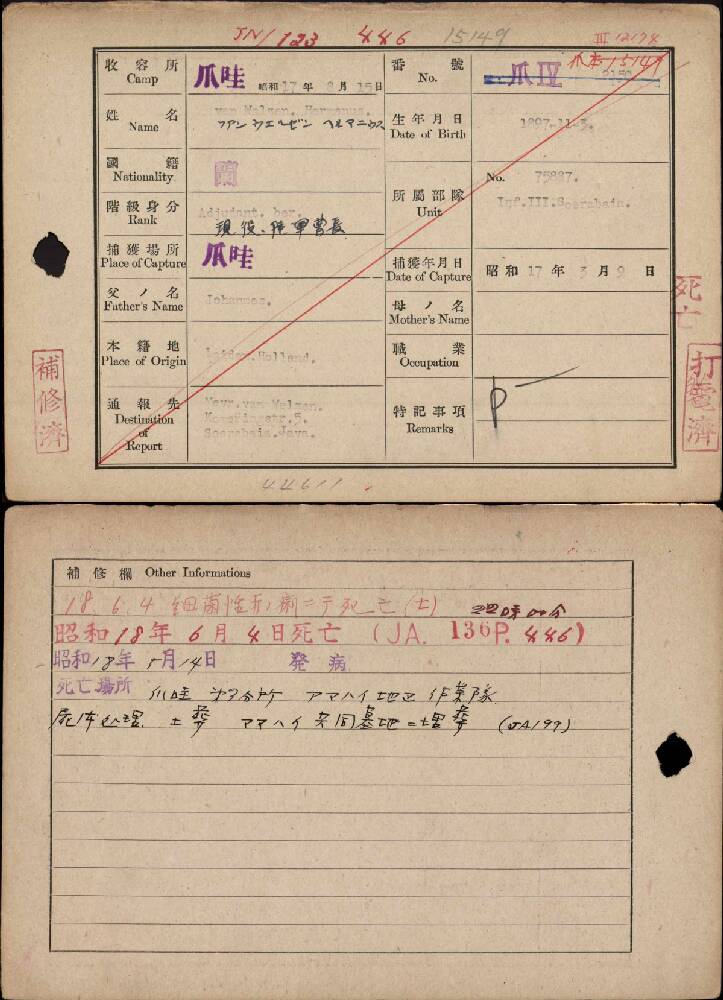 JN/123 446 15149 III 12194
收容所 Camp 爪哇 昭和17年8月15日
番號 No. 爪IV 爪本15149
姓名 Name van Welzen. Hermanus.
ファン ウエルゼン ヘルマニウス
生年月日 Date of Birth 1897-11-3.
國籍 Nationality 蘭
階級身分 Rank Adjudant. ber.
現役、陸軍曹長
所屬部隊 Unit No. 75887.
Inf.III.Soerabaia.
捕獲場所 Place of Capture 爪哇
捕獲年月日 Date of Capture 昭和17年3月9日
父ノ名 Father's Name Johannes.
母ノ名 Mother's Name
本籍地 Place of Origin Leiden.Holland.
職業 Occupation
通報先 Destination of Report Mevr.van Welzen.
5.
Soerabaia.Java.
特記事項 Remarks P
死亡
補修済
打電済
44611
補修欄 Other Informations
18.6.4 細菌性赤痢ニテ死亡(土)
昭和18年6月4日死亡(JA. 136P. 446)
昭和18年5月14日 発病
死亡場所 爪哇 分所 アマハイ地区 作業隊
死体処理 土葬 アマハイ共同墓地ニ埋葬 (JA199)